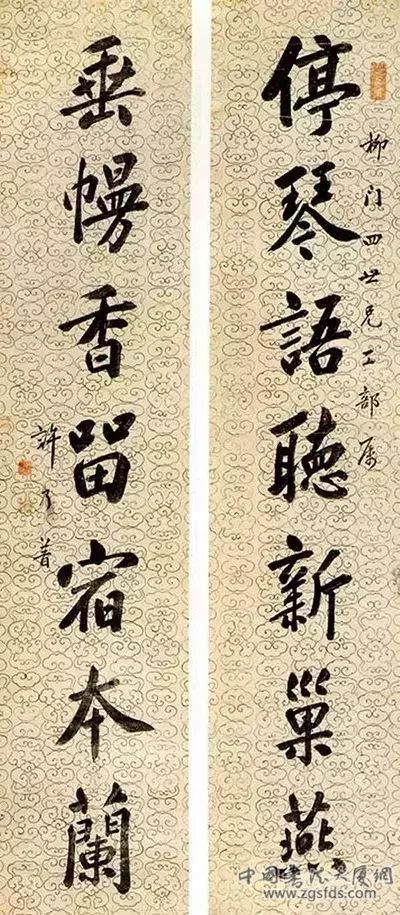 柳门四世兄工部属
停琴語聽新巢燕
垂幔香留宿本蘭
許乃普
中国书法大厦网
www.zgsfds.com